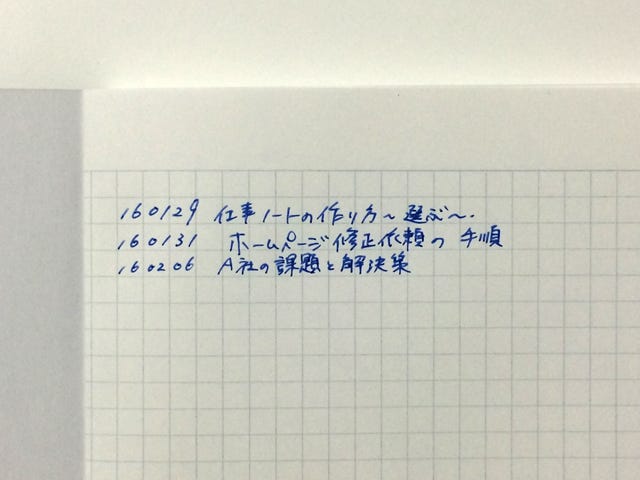 160129 仕事ノートの作り方〜選ぶ〜.
160131 ホームページ修正依頼の手順
160206 A社の課題と解決策